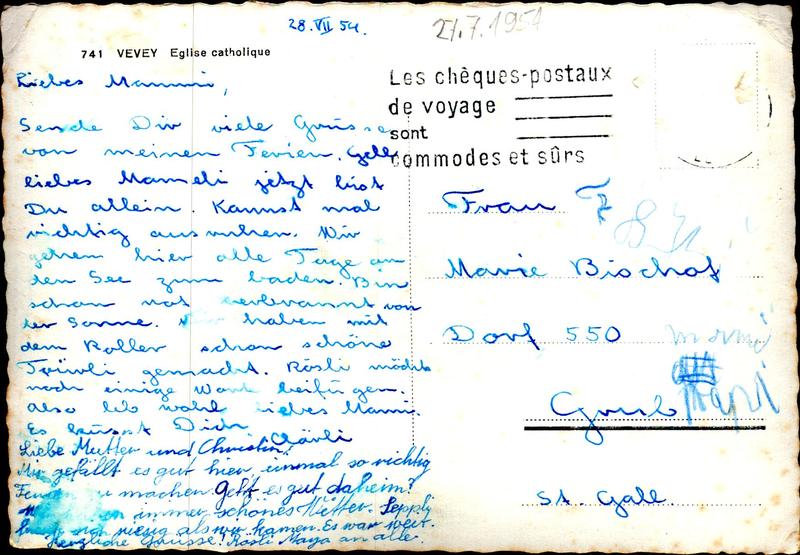 28. VII 54.
21.7.1954
741 VEVEY Eglise catholique
Les chèques-postaux
de voyage
sont
commodes et sûrs
Liebes Mammi,
Sende Dir viele Grüsse
von meinen Ferien. Gell
liebes Mameli jetzt bist
Du allein. Kannst mal
richtig ausruhen. Wir
gehen hier alle Tage an
den See zum baden. Bin
schon rot verbrannt von
der Sonne. Wir haben mit
dem Roller schon schöne
Türli gemacht. Rösli möcht
noch einige Wort beifügen.
Also leb wohl liebes Mammi.
Es küsst Dich
Clärli
Liebe Mutter und Christin!
Mir gefällt es gut hier, einmal so richtig
Ferien zu machen. Geht es gut daheim?
immer schönes Wetter. Seppli
riesig als wir kamen. Es war weit.
Herzliche Grüsse! Rösli Maya an alle.
Frau
Marie Bischof
Dorf 550
mami
Grub
St. Gall.